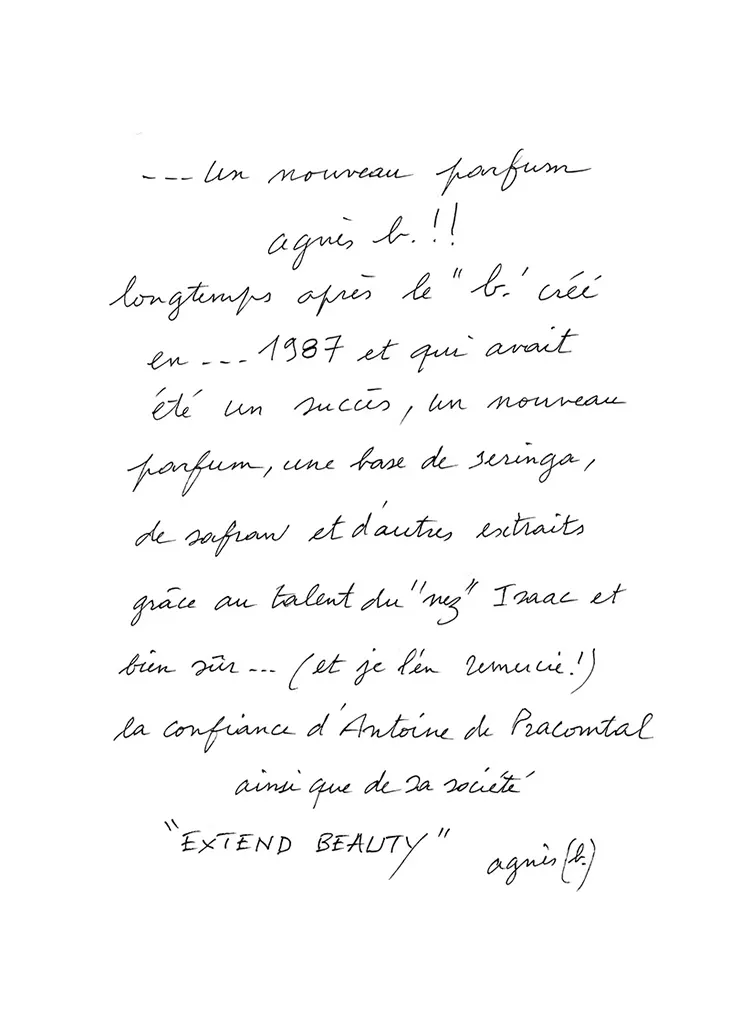 --- Un nouveau parfum
agnès b.!!
longtemps après le "b.' créé
en --- 1987 et qui avait
été un succès, un nouveau
parfum, une base de seringa,
de safran et d'autres extraits
grâce au talent du "nez" Isaac et
bien sûr --- (et je l'en remercie!)
la confiance d'Antoine de Pracomtal
ainsi que de sa société
"EXTEND BEAUTY"
agnès (b.)